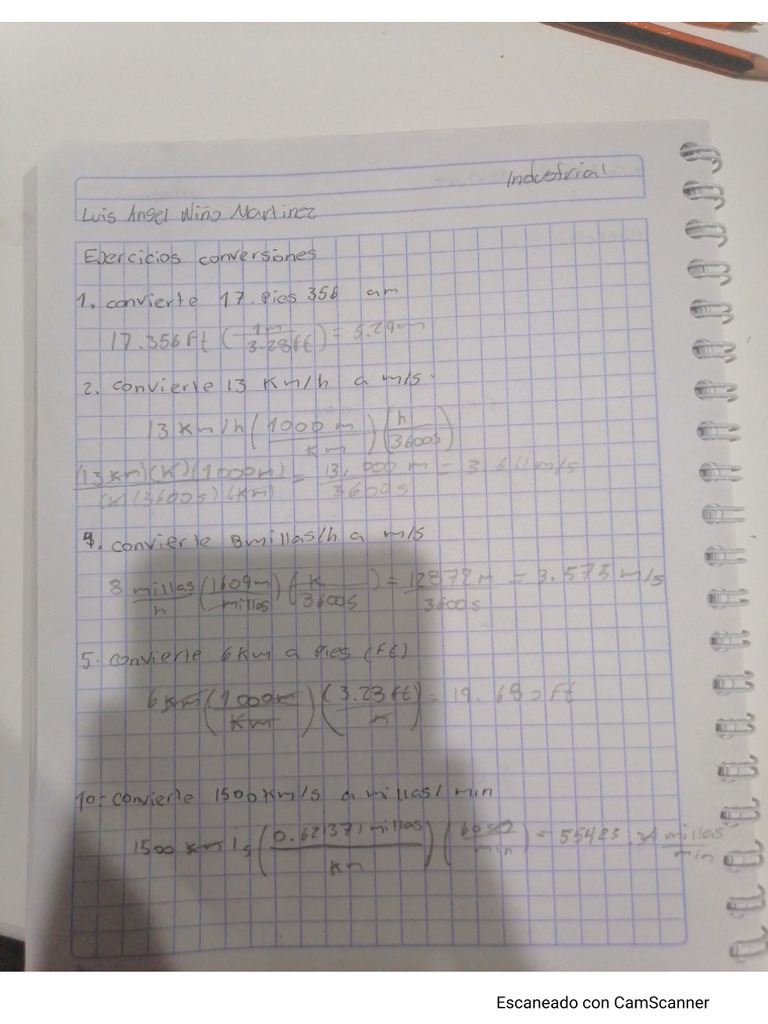 Industrial
Luis Angel Niño Martinez
Ejercicios conversiones
1. convierte 17. Pies 356 a m
17.356 ft (1m / 3.28ft) = 5.29m
2. convierte 13 Km/h a m/s.
13 Km/h (1000 m / Km) (h / 3600s)
(13 Km)(h)(1000m) / (h)(3600s)(Km) = 13,000 m / 3600s = 3.611 m/s
4. convierte 8 millas/h a m/s
8 millas/h (1609m / millas) (h / 3600s) = 12872 m / 3600s = 3.575 m/s
5. convierte 6 Km a Pies (ft)
6 Km (1000m / Km) (3.28 ft / m) = 19.680 ft
10- convierte 1500 Km/s a millas/min
1500 Km/s (0.621371 millas / Km) (60s / min) = 55923.4 millas/min
Escaneado con CamScanner